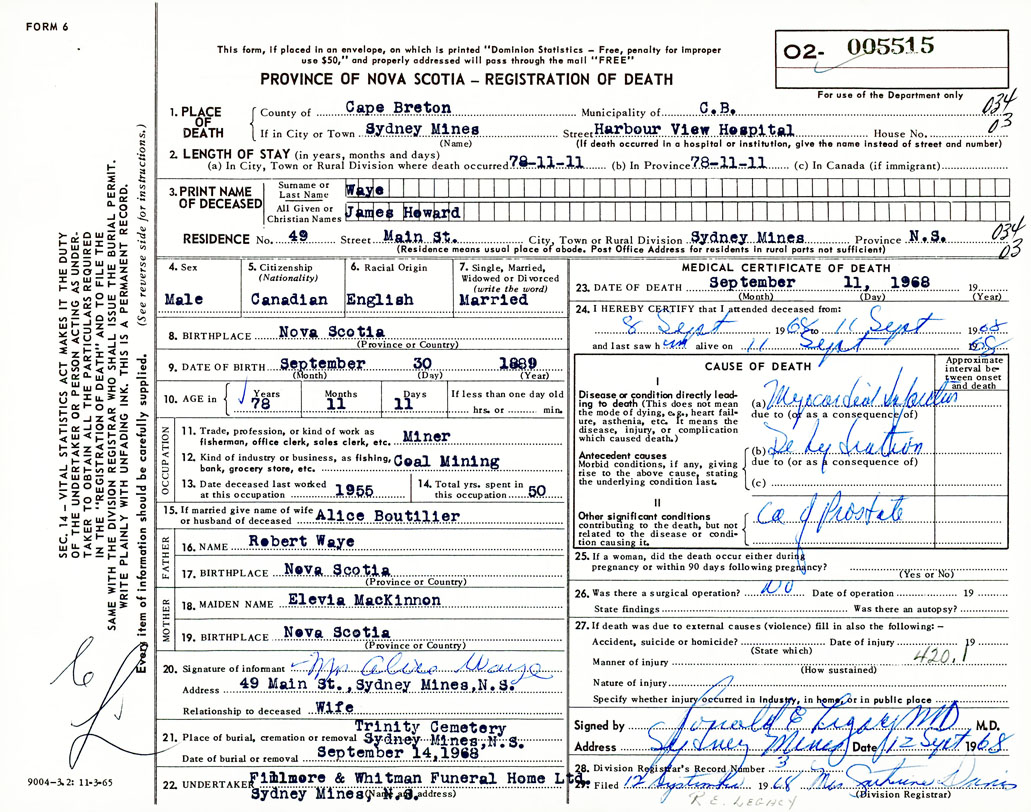 FORM 6
This form, if placed in an envelope, on which is printed "Dominion Statistics — Free, penalty for improper
use $50," and properly addressed will pass through the mail "FREE"
PROVINCE OF NOVA SCOTIA — REGISTRATION OF DEATH
02- 005515
For use of the Department only
034
03
1. PLACE OF DEATH
County of Cape Breton Municipality of C.B.
If in City or Town Sydney Mines Street Harbour View Hospital House No.
(Name) (If death occurred in a hospital or institution, give the name instead of street and number)
2. LENGTH OF STAY (in years, months and days)
(a) In City, Town or Rural Division where death occurred 78-11-11 (b) In Province 78-11-11 (c) In Canada (if immigrant)
3. PRINT NAME OF DECEASED
Surname or Last Name Waye
All Given or Christian Names James Howard
RESIDENCE No. 49 Street Main St. City, Town or Rural Division Sydney Mines Province N.S.
(Residence means usual place of abode. Post Office Address for residents in rural parts not sufficient)
034
03
4. Sex
Male
5. Citizenship
(Nationality)
Canadian
6. Racial Origin
English
7. Single, Married,
Widowed or Divorced
(write the word)
Married
8. BIRTHPLACE Nova Scotia
(Province or Country)
9. DATE OF BIRTH September 30 1889
(Month) (Day) (Year)
10. AGE in Years Months Days If less than one day old
78 11 11 hrs. or min.
OCCUPATION
11. Trade, profession, or kind of work as
fisherman, office clerk, sales clerk, etc. Miner
12. Kind of industry or business, as fishing,
bank, grocery store, etc. Coal Mining
13. Date deceased last worked
at this occupation 1955
14. Total yrs. spent in
this occupation 50
15. If married give name of wife
or husband of deceased Alice Boutilier
FATHER
16. NAME Robert Waye
17. BIRTHPLACE Nova Scotia
(Province or Country)
MOTHER
18. MAIDEN NAME Elevia MacKinnon
19. BIRTHPLACE Nova Scotia
(Province or Country)
20. Signature of informant Mrs Alice Waye
Address 49 Main St., Sydney Mines, N.S.
Relationship to deceased Wife
21. Place of burial, cremation or removal Trinity Cemetery
Sydney Mines, N.S.
Date of burial or removal September 14, 1968
22. UNDERTAKER Fillmore & Whitman Funeral Home Ltd.
Sydney Mines, N.S.
(Name and address)
MEDICAL CERTIFICATE OF DEATH
23. DATE OF DEATH September 11, 1968 19
(Month) (Day) (Year)
24. I HEREBY CERTIFY that I attended deceased from:
8 Sept 1968 to 11 Sept 1968
and last saw him alive on 11 Sept 1968
CAUSE OF DEATH
Approximate
interval be-
tween onset
and death
I
Disease or condition directly lead-
ing to death (This does not mean
the mode of dying, e.g., heart fail-
ure, asthenia, etc. It means the
disease, injury, or complication
which caused death.)
(a) Myocardial Infarction
due to (or as a consequence of)
Antecedent causes
Morbid conditions, if any, giving
rise to the above cause, stating
the underlying condition last.
(b) Dehydration
due to (or as a consequence of)
(c)
II
Other significant conditions
contributing to the death, but not
related to the disease or condi-
tion causing it.
Ca of Prostate
25. If a woman, did the death occur either during
pregnancy or within 90 days following pregnancy?
(Yes or No)
26. Was there a surgical operation? NO Date of operation 19
State findings Was there an autopsy?
27. If death was due to external causes (violence) fill in also the following: —
Accident, suicide or homicide? Date of injury 19
(State which)
420.1
Manner of injury
(How sustained)
Nature of injury
Specify whether injury occurred in industry, in home, or in public place
Signed by Ronald E MD M.D.
Address Sydney Mines Date 12 Sept 1968
28. Division Registrar's Record Number 3
29. Filed 12 September 1968 Mrs Davis
(Division Registrar)
R.E. LEGACY
SEC. 14 — VITAL STATISTICS ACT MAKES IT THE DUTY
OF THE UNDERTAKER OR PERSON ACTING AS UNDER-
TAKER TO OBTAIN ALL THE PARTICULARS REQUIRED
IN THE "REGISTRATION OF DEATH" AND TO FILE THE
SAME WITH THE DIVISION REGISTRAR WHO SHALL ISSUE THE BURIAL PERMIT.
WRITE PLAINLY WITH UNFADING INK. THIS IS A PERMANENT RECORD.
Every item of information should be carefully supplied. (See reverse side for instructions.)
9004-3.2: 11-3-65